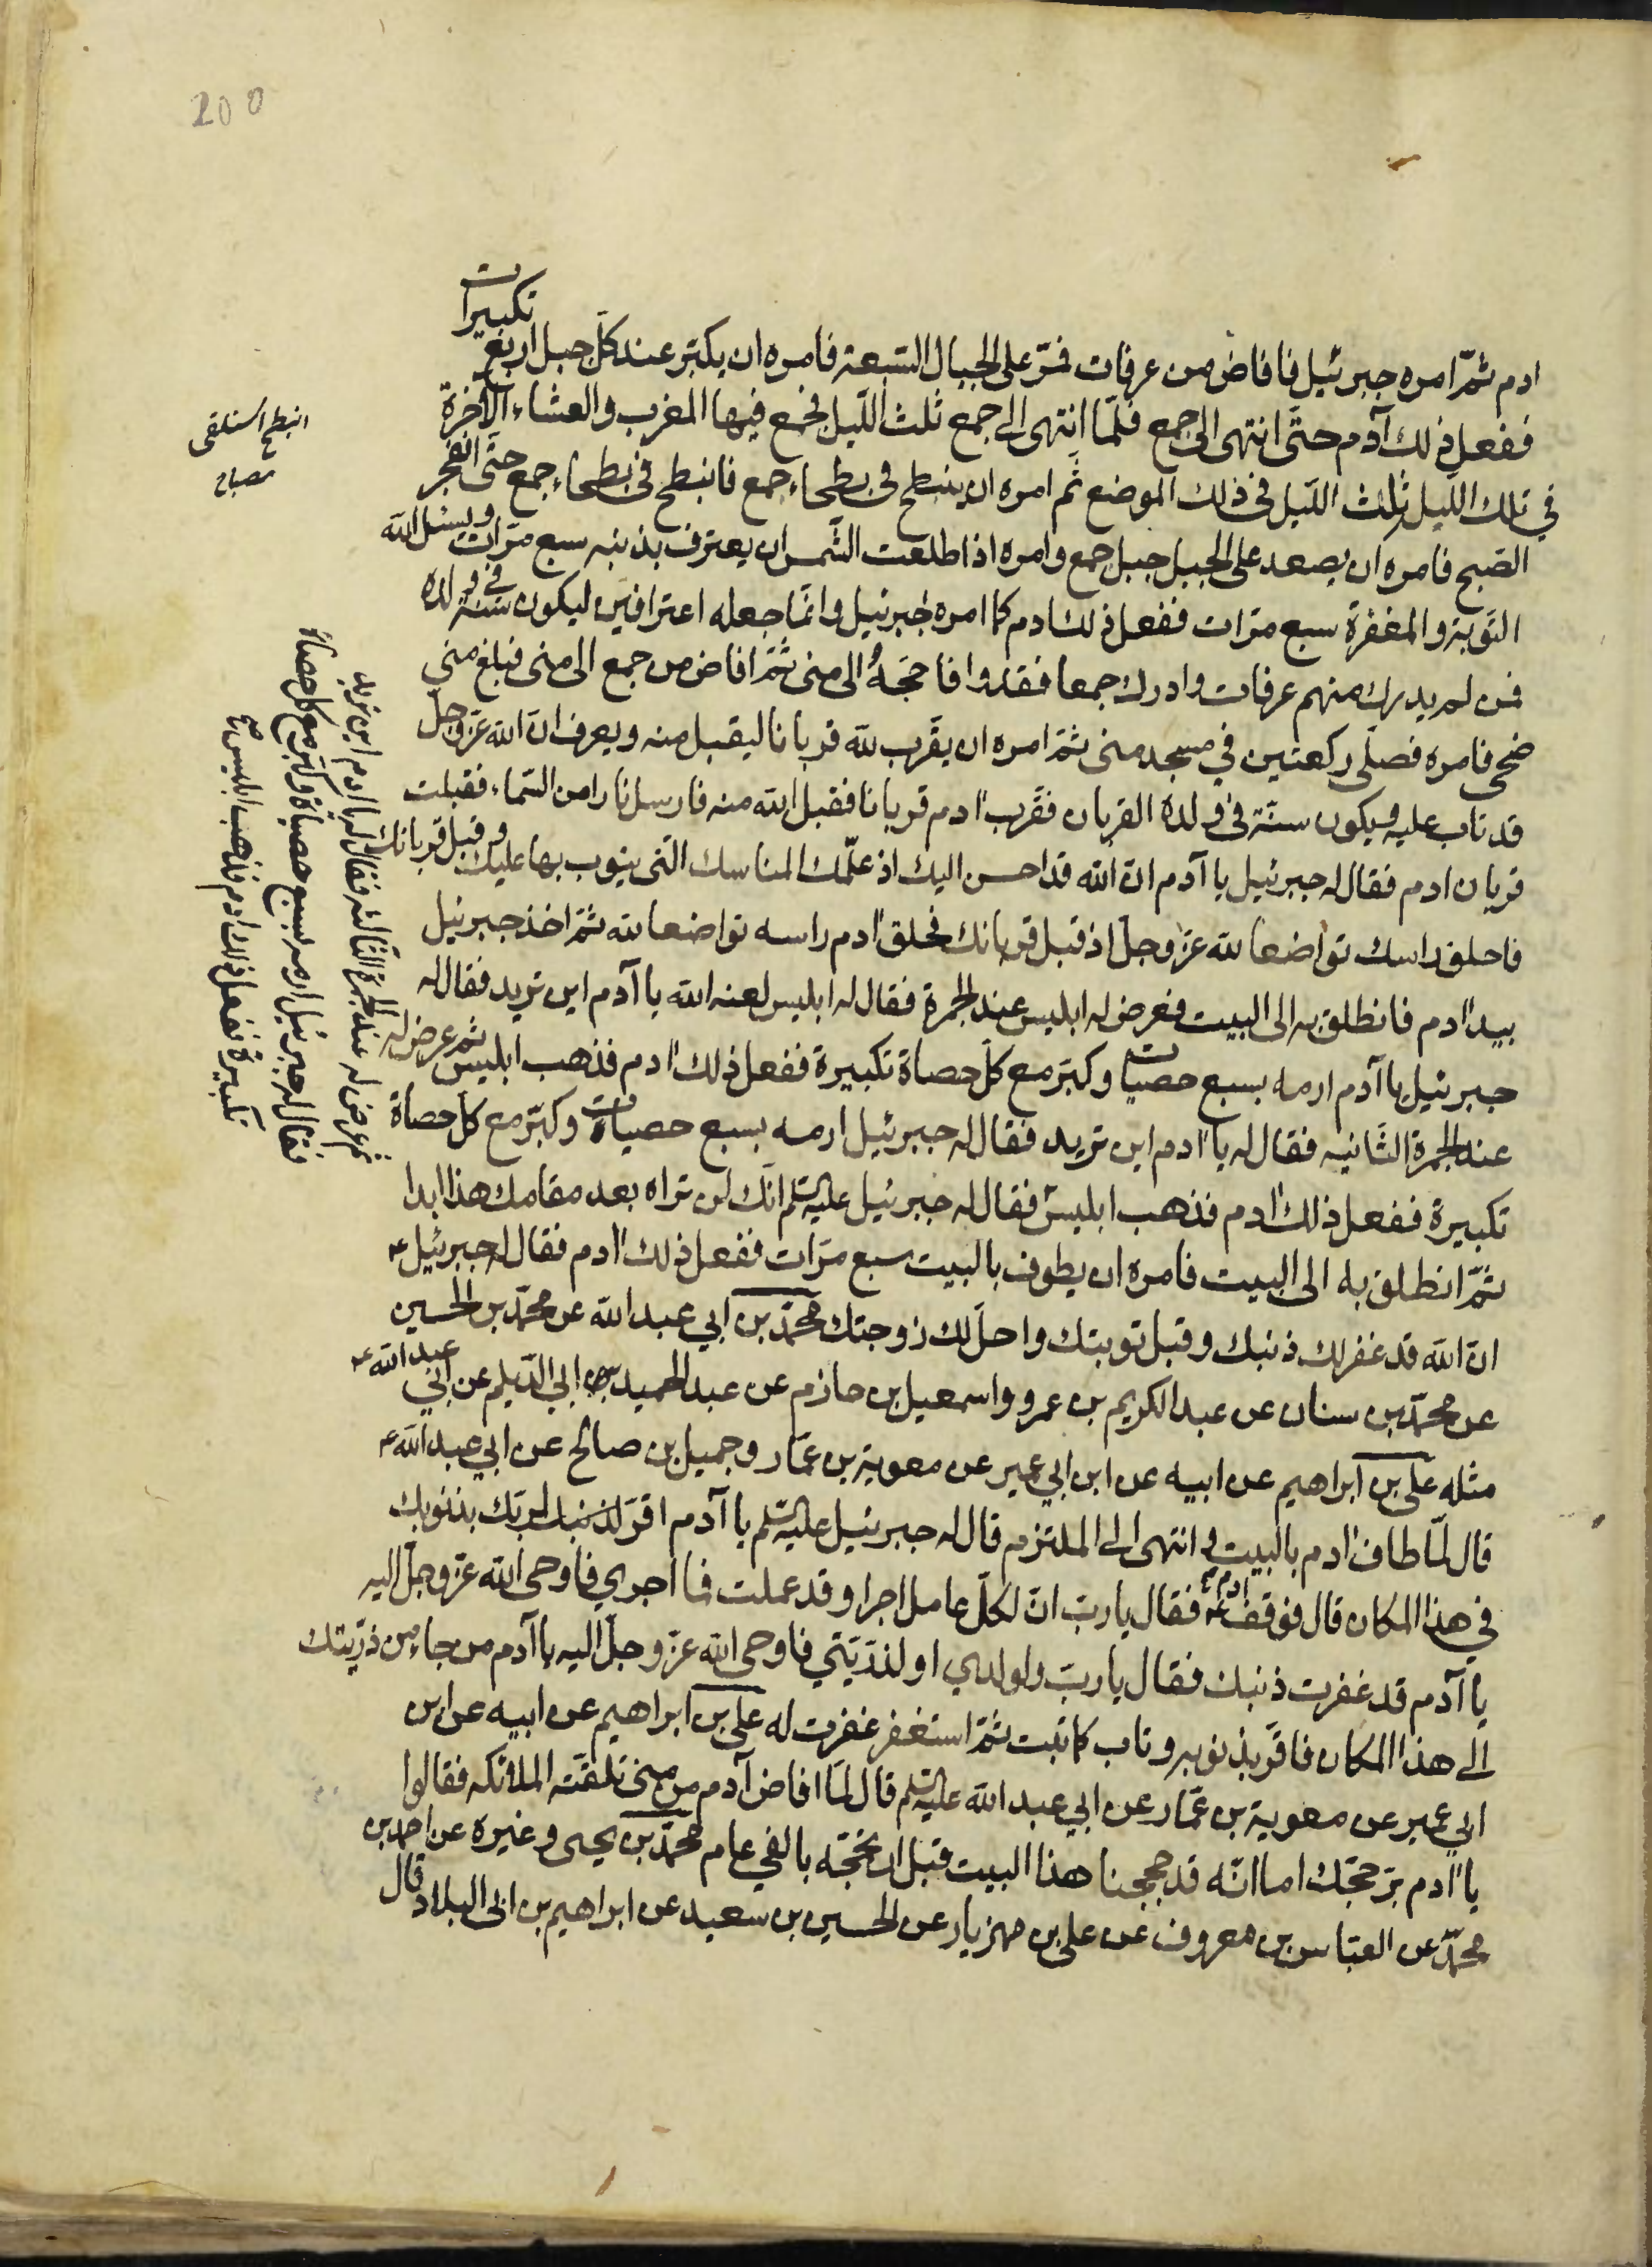 200
ادم ثمّ امره جبرئيل فافاض من عرفات فمرّ على الجبال السّبعة فامره ان يكبّر عند كلّ جبل اربع تكبيرات
ففعل ذلك آدم حتّى انتهى الى جمع فلمّا انتهى الى جمع ثلث اللّيل فجمع فيها المغرب والعشاء الآخرة
في تلك الليل ثلث اللّيل في ذلك الموضع ثم امره ان ينبطح في بطحاء جمع فانبطح في بطحاء جمع حتّى انفجر
الصّبح فامره ان يصعد على الجبل جبل جمع وامره اذا طلعت الشّمس ان يعترف بذنبه سبع مرّات ويسئل الله
التّوبة والمغفرة سبع مرّات ففعل ذلك ادم كما امره جبرئيل وانّما جعله اعترافين ليكون سنّة في ولده
فمن لم يدرك منهم عرفات وادرك جمعا فقد وافا حجّهُ الى منى ثمّ افاض من جمع الى منى فبلغ منى
ضحى فامره فصلّى ركعتين في مسجد منى ثمّ امره ان يقرّب لله قربانا ليقبل منه ويعرف انّ الله عزّ وجلّ
قد تاب عليه ويكون سنّة في ولده القربان فقرّب آدم قربانا فقبل الله منه فارسل نارا من السّماء فقبلت
قربان ادم فقال له جبرئيل يا آدم انّ الله قد احسن اليك اذ علّمك المناسك التى يتوب بها عليك وقبل قربانك
فاحلق راسك تواضعا لله عزّ وجلّ اذ قبل قربانك فحلق آدم راسه تواضعا لله ثمّ اخذ جبرئيل
بيد آدم فانطلق به الى البيت فعرض له ابليس عند الجمرة فقال له ابليس لعنه الله يا آدم اين تريد فقال له
جبرئيل يا آدم ارمه بسبع حصيات وكبّر مع كلّ حصاة تكبيرة ففعل ذلك آدم فذهب ابليس ثم عرض له
عند الجمرة الثّانيه فقال له يا آدم اين تريد فقال له جبرئيل ارمه بسبع حصيات وكبّر مع كلّ حصاة
تكبيرة ففعل ذلك آدم فذهب ابليس فقال له جبرئيل عليه السّلم انّك لن تراه بعد مقامك هذا ابدا
ثمّ انطلق به الى البيت فامره ان يطوف بالبيت سبع مرّات ففعل ذلك آدم فقال له جبرئيل ع
انّ الله قد غفر لك ذنبك وقبل توبتك واحلّ لك زوجتك محمّد بن ابي عبد الله عن محمّد بن الحسين
عن محمّد بن سنان عن عبد الكريم بن عمرو واسمعيل بن حازم عن عبد الحميد بن ابي الدّيلم عن ابي عبد الله ع
مثله على بن ابراهيم عن ابيه عن ابن ابي عمير عن معوية بن عمّار وجميل بن صالح عن ابي عبد الله ع
قال لمّا طاف آدم بالبيت و انتهى الى الملتزم قال له جبرئيل عليه السّلم يا آدم اقرّ لربّك بذنوبك
في هذا المكان قال فوقف آدم ع فقال يا ربّ انّ لكلّ عامل اجرا وقد عملت فما اجري فاوحى الله عزّ وجلّ اليه
يا آدم قد غفرت ذنبك فقال يا ربّ ولولدي او لذرّيّتي فاوحى الله عزّ وجلّ اليه يا آدم من جاء من ذرّيتك
الى هذا المكان فاقرّ بذنوبه وتاب كما تبت ثمّ استغفر غفرت له على بن ابراهيم عن ابيه عن ابن
ابي عمير عن معوية بن عمّار عن ابي عبد الله عليه السّلم قال لمّا افاض آدم من منى تلقّته الملائكه فقالوا
يا آدم برّ حجّك اما انّه قد حججنا هذا البيت قبل ان تحجّه بالفي عام محمّد بن يحيى وغيره عن احمد بن
محمّد عن العبّاس بن معروف عن على بن مهزيار عن الحسين بن سعيد عن ابراهيم بن ابى البلاد قال
انبطح استلقى
مصباح
ثم عرض له عند الجمرة الثالثه فقال له يا ادم اين تريد
فقال له جبرئيل ارمه بسبع حصياة وكبّر مع كل حصاة
تكبيرة ففعل ذلك ادم فذهب ابليس صح